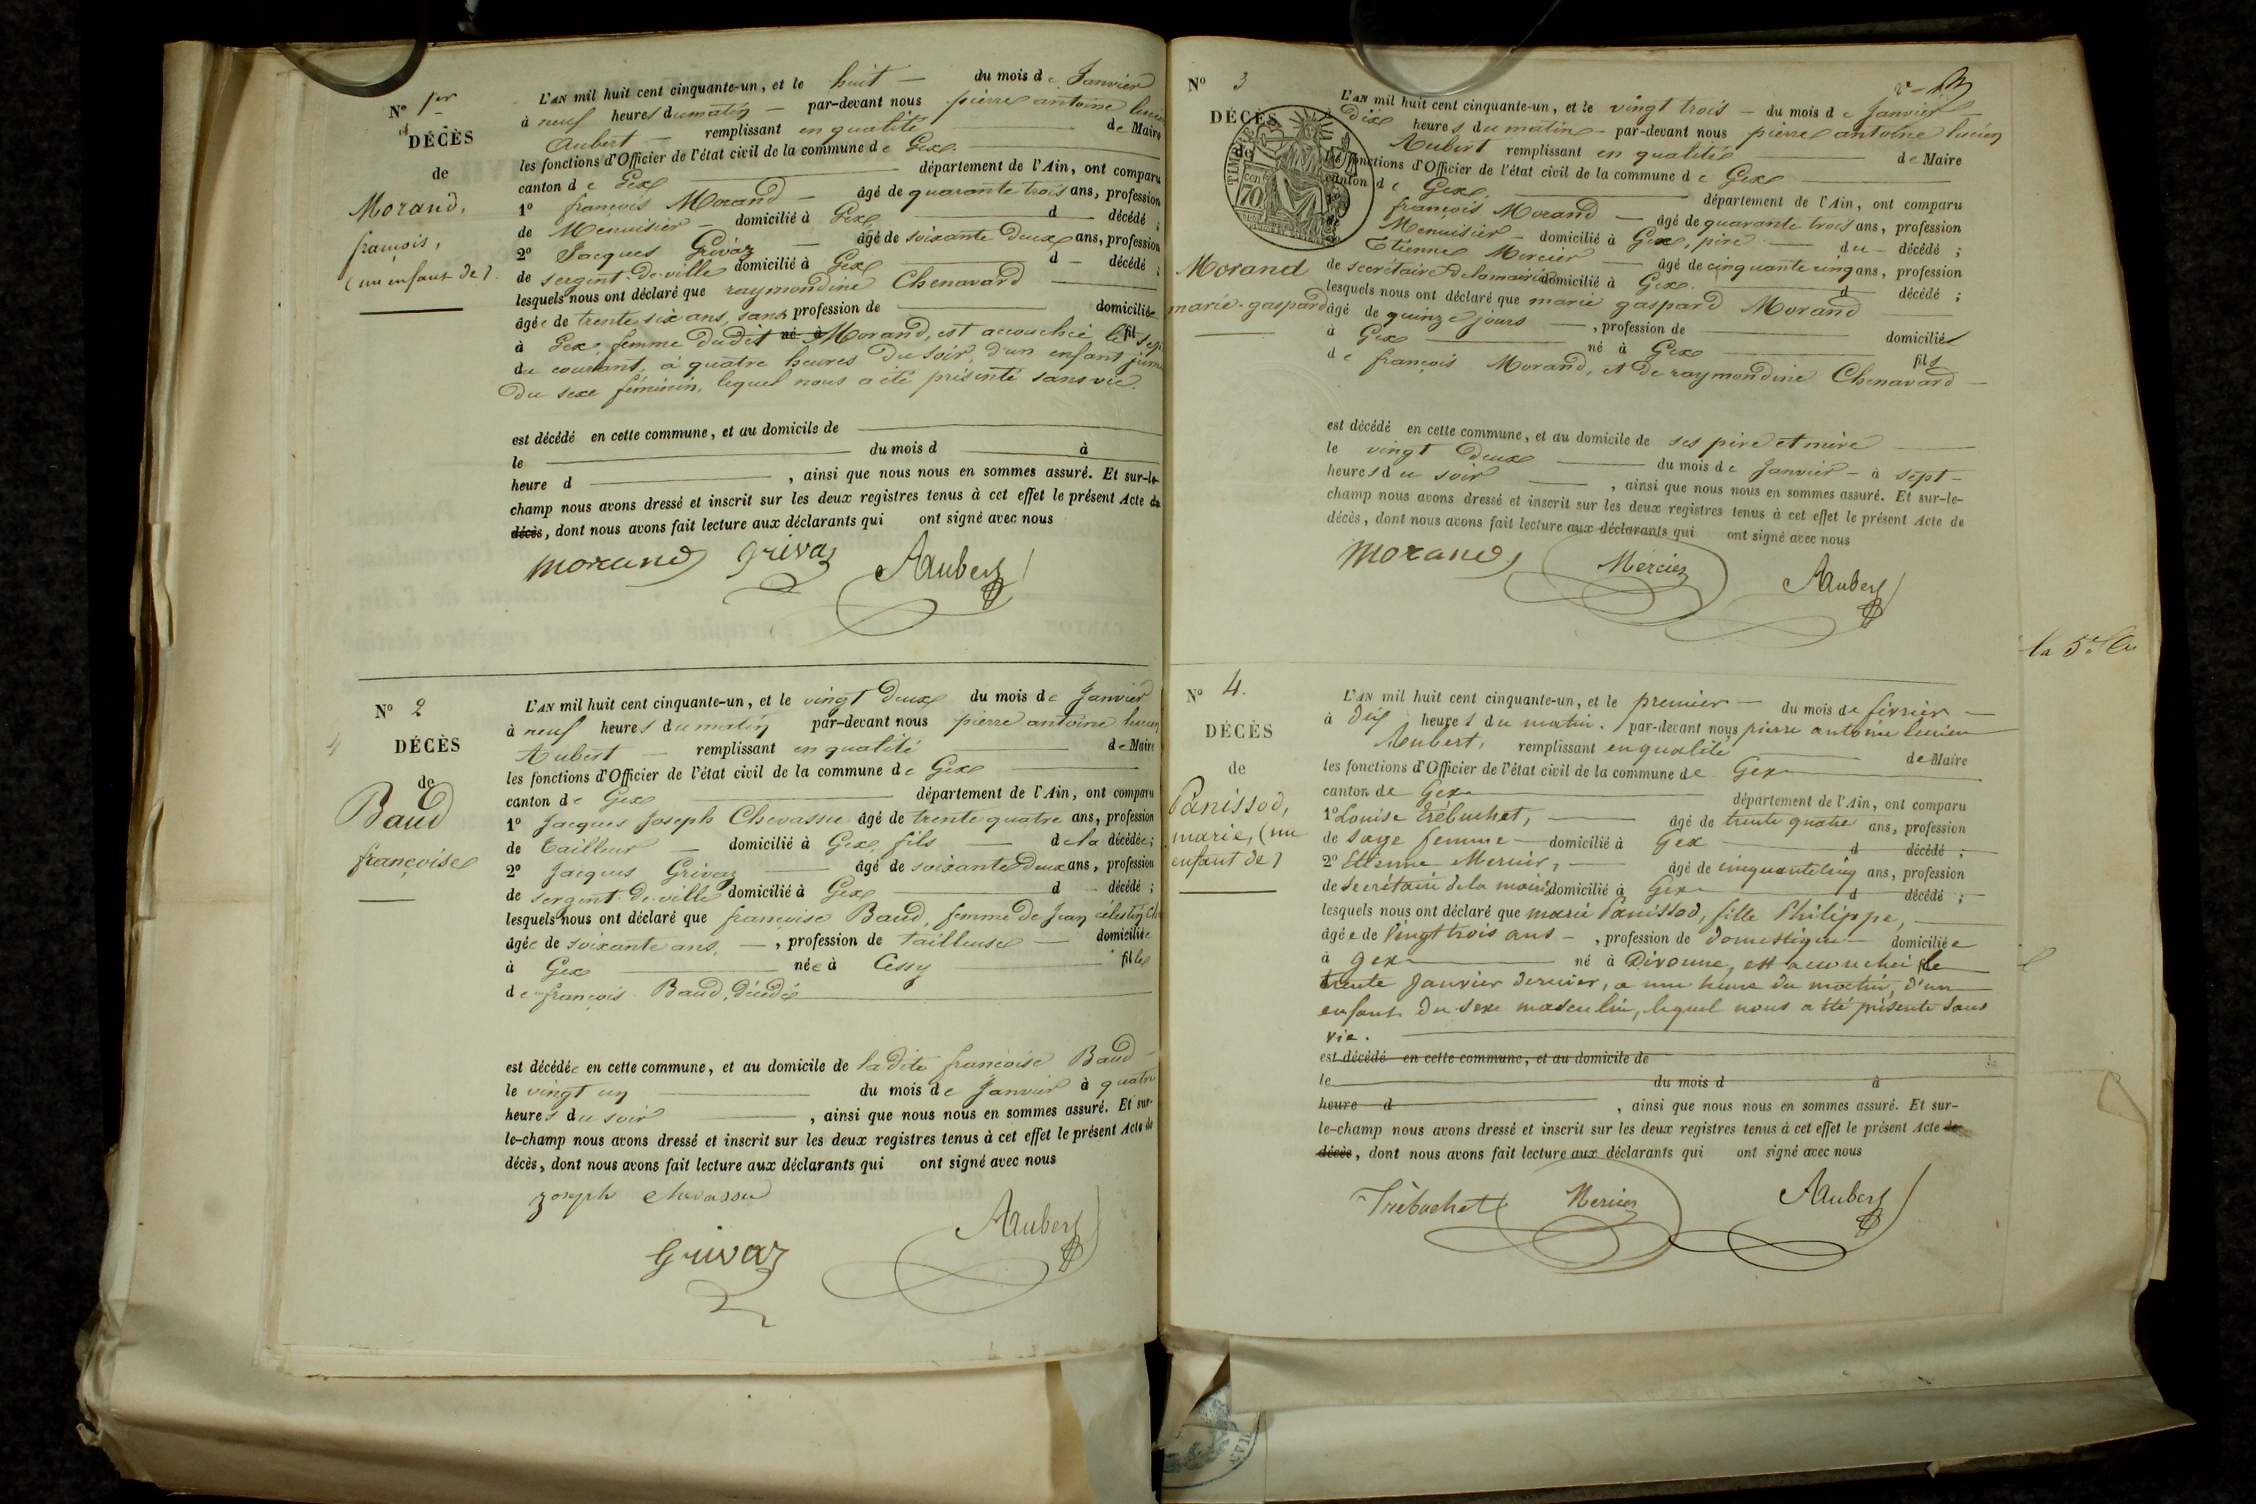 N° 1er
DÉCÈS
de
Morand,
françois,
(un enfant de).
L'AN mil huit cent cinquante-un, et le huit — du mois de Janvier
à neuf heures du matin — par-devant nous pierre antoine lucien
Aubert — remplissant en qualité — de Maire
les fonctions d'Officier de l'état civil de la commune de Gex. —
canton de Gex — département de l'Ain, ont comparu
1° françois Morand — âgé de quarante trois ans, profession
de Menuisier — domicilié à Gex — d — décédé ;
2° Jacques Grivaz — âgé de soixante deux ans, profession
de sergent-de-ville domicilié à Gex — d — décédé ;
lesquels nous ont déclaré que raymondine Chenavard —
âgée de trente six ans, sans profession de — domiciliée
à Gex, femme dudit né à Morand, est accouchée le fil sept
du courant, à quatre heures du soir, d'un enfant
du sexe féminin, lequel nous a été présenté sans vie.
est décédé en cette commune, et au domicile de —
le — du mois d — à
heure d — , ainsi que nous nous en sommes assuré. Et sur-le-
champ nous avons dressé et inscrit sur les deux registres tenus à cet effet le présent Acte de
décès, dont nous avons fait lecture aux déclarants qui ont signé avec nous
Morand Grivaz AAubert
N° 2
DÉCÈS
de
Baud
françoise
L'AN mil huit cent cinquante-un, et le vingt deux du mois de Janvier
à neuf heures du matin par-devant nous pierre antoine lucien
Aubert — remplissant en qualité — de Maire
les fonctions d'Officier de l'état civil de la commune de Gex —
canton de Gex — département de l'Ain, ont comparu
1° Jacques Joseph Chevassu âgé de trente quatre ans, profession
de tailleur — domicilié à Gex, fils — de la décédée ;
2° Jacques Grivaz — âgé de soixante deux ans, profession
de sergent-de-ville domicilié à Gex — d décédé ;
lesquels nous ont déclaré que françoise Baud, femme de Jean célestin
âgée de soixante ans, — , profession de tailleuse — domiciliée
à Gex — née à Cessy — fille
de françois Baud, décédé —
est décédée en cette commune, et au domicile de ladite françoise Baud —
le vingt un — du mois de Janvier à quatre
heures du soir — , ainsi que nous nous en sommes assuré. Et sur-
le-champ nous avons dressé et inscrit sur les deux registres tenus à cet effet le présent Acte de
décès, dont nous avons fait lecture aux déclarants qui ont signé avec nous
Joseph Chevassu
AAubert
Grivaz
N° 3
DÉCÈS
de
TIMBRE
70
Morand
marie-gaspard
L'AN mil huit cent cinquante-un, et le vingt trois — du mois de Janvier —
Dix heures du matin — par-devant nous pierre antoine lucien
Aubert remplissant en qualité — de Maire
les fonctions d'Officier de l'état civil de la commune de Gex —
canton de Gex — département de l'Ain, ont comparu
françois Morand — âgé de quarante trois ans, profession
Menuisier — domicilié à Gex, père — du — décédé ;
Etienne Mercier — âgé de cinquante cinq ans, profession
de secrétaire de la mairie domicilié à Gex — d décédé ;
lesquels nous ont déclaré que marie gaspard Morand —
âgé de quinze jours — , profession de — domicilié
à Gex — né à Gex — fils
de françois Morand, et de raymondine Chenavard —
est décédé en cette commune, et au domicile de ses père et mère —
le vingt deux — du mois de Janvier — à sept —
heures du soir — , ainsi que nous nous en sommes assuré. Et sur-le-
champ nous avons dressé et inscrit sur les deux registres tenus à cet effet le présent Acte de
décès, dont nous avons fait lecture aux déclarants qui ont signé avec nous
Morand Mercier AAubert
N° 4.
DÉCÈS
de
Panissod,
marie, (un
enfant de)
L'AN mil huit cent cinquante-un, et le premier — du mois de février —
à dix heures du matin. par-devant nous pierre antoine lucien
Aubert, remplissant en qualité — de Maire
les fonctions d'Officier de l'état civil de la commune de Gex —
canton de Gex — département de l'Ain, ont comparu
1° Louise Trébuchet, — âgé de trente quatre ans, profession
de sage femme — domicilié à Gex — d décédé ;
2° Etienne Mercier, — âgé de cinquante cinq ans, profession
de secrétaire de la mairie domicilié à Gex — d décédé ;
lesquels nous ont déclaré que marie Panissod, fille Philippe, —
âgée de vingt trois ans — , profession de domestique — domiciliée
à gex — né à Divonne, est accouchée le
trente Janvier dernier, à une heure du matin, d'un
enfant du sexe masculin, lequel nous a été présenté sans
vie. —
est décédé en cette commune, et au domicile de
le — du mois d — à
heure d — , ainsi que nous nous en sommes assuré. Et sur-
le-champ nous avons dressé et inscrit sur les deux registres tenus à cet effet le présent Acte de
décès, dont nous avons fait lecture aux déclarants qui ont signé avec nous
Trèbuchet Mercier AAubert